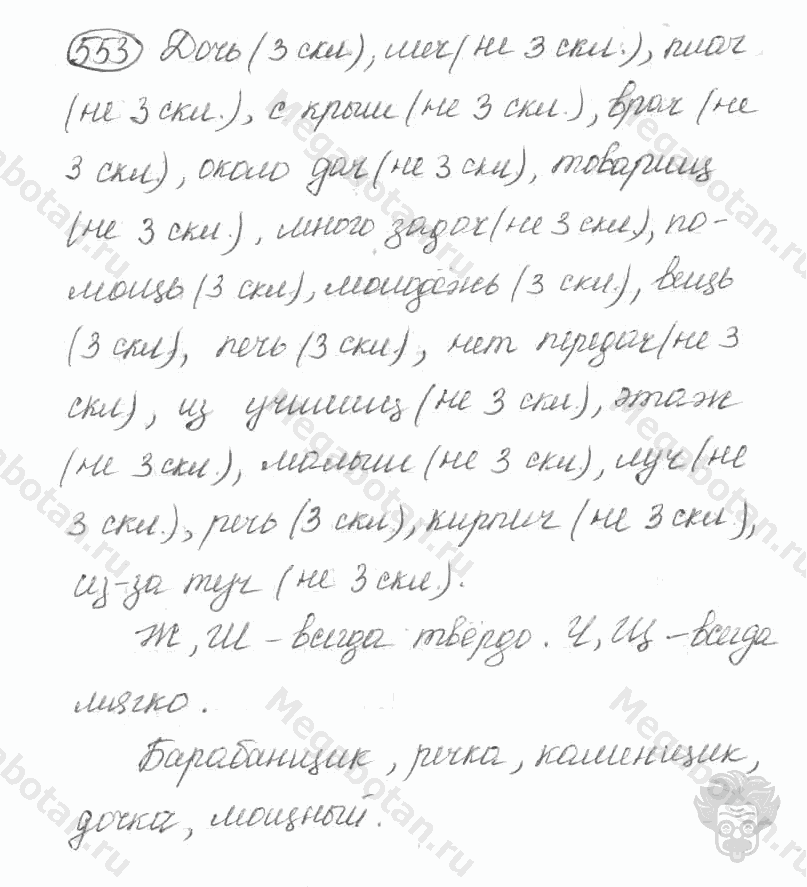 553 Дочь (3 скл.), меч (не 3 скл.), плач
(не 3 скл.), с крыш (не 3 скл.), врач (не
3 скл.), около дач (не 3 скл), товарищ
(не 3 скл.), много задач (не 3 скл), по-
мощь (3 скл), молодёжь (3 скл.), вещь
(3 скл), печь (3 скл), нет передач (не 3
скл), из училищ (не 3 скл.), этаж
(не 3 скл.), малыш (не 3 скл), луч (не
3 скл.), речь (3 скл), кирпич (не 3 скл.),
из-за туч (не 3 скл.).
Ж, Ш - всегда твёрдо. Ч, Щ - всегда
мягко.
Барабанщик, речка, каменщик,
дочка, мощный.
Megabotan.ru